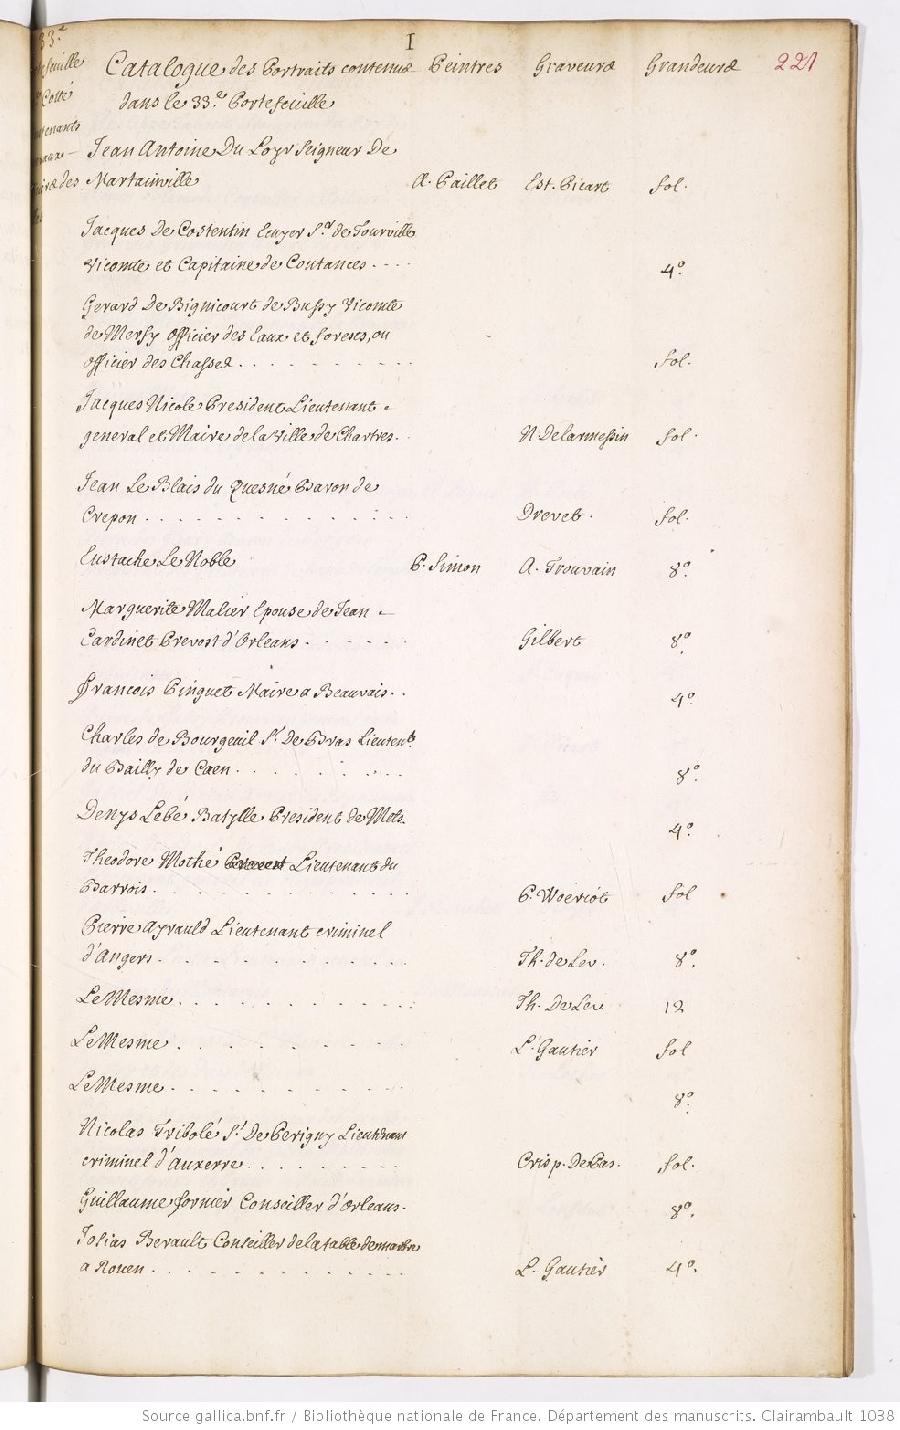 I
Catalogue des Portraits contenus Peintres Graveurs Grandeurs 221
dans le 33.e Portefeuille
Jean Antoine Du Loyr Seigneur De
Martainville A. Paillet Est. Picart fol.
Jacques De Costentin Ecuyer S.r de Tourville
Vicomte et Capitaine de Coutances 4.o
Gerard De Bignicourt de Bussy Vicomte
de Mersy officier des Eaux et forests, ou
officier des Chasses fol.
Jacques Nicole President Lieutenant
general et Maire de la Ville de Chartres N. Delarmessin fol.
Jean Le Blais du Quesné Baron de
Crepon Drevet fol.
Eustache Le Noble P. Simon A. Trouvain 8.o
Marguerite Malier Epouse de Jean
Cardinet Prevost d'Orleans Gilbert 8.o
François Pinguet Maire a Beauvais 4.o
Charles de Bourgeuil S.r De Bras Lieuten.t
du Bailly de Caen 8.o
Denys Lebé Batylle President de Mets 4.o
Theodore Mothé Lieutenant du
Barrois P. Woeriot fol
Pierre Ayrauld Lieutenant criminel
d'Angers Th. de Leu 8.o
Le Mesme Th. De Leu 12
Le Mesme L. Gautier fol
Le Mesme 8.o
Nicolas Tribolé S.r De Perigny Lieutenant
criminel d'Auxerre Crisp. De Pas. fol.
Guillaume fornier Conseiller d'Orleans 8.o
Josias Berault Conseiller de la table de marbre
a Rouen L. Gautier 4.o
Source gallica.bnf.fr / Bibliothèque nationale de France. Département des manuscrits. Clairambault 1038